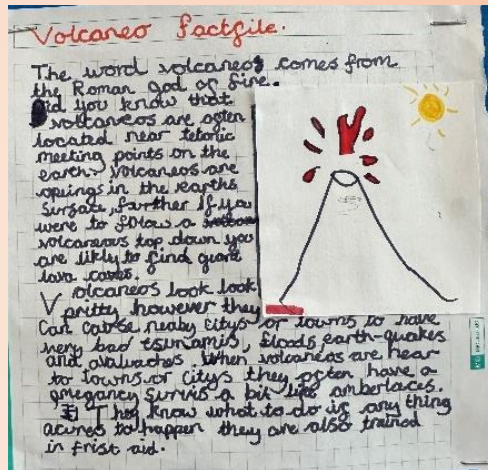 Volcaneo factfile.
The word volcaneos comes from
the Roman god of fire.
Did you know that
volcaneos are often
located near tetonic
meeting points on the
earth. Volcaneos are
opings in the earths
surface, further if you
were to follow a
volcaneous top down you
are likely to find giant
lava caves.
Volcaneos look look
pritty however they
can cause neaby citys or towns to have
very bad tsunamis, floods, earth-quakes
and avalaches when volcaneos are near
to towns or citys they often have a
emegancy survis a bit like amberlaces.
They know what to do if any thing
acures to happen they are also trained
in frist aid.